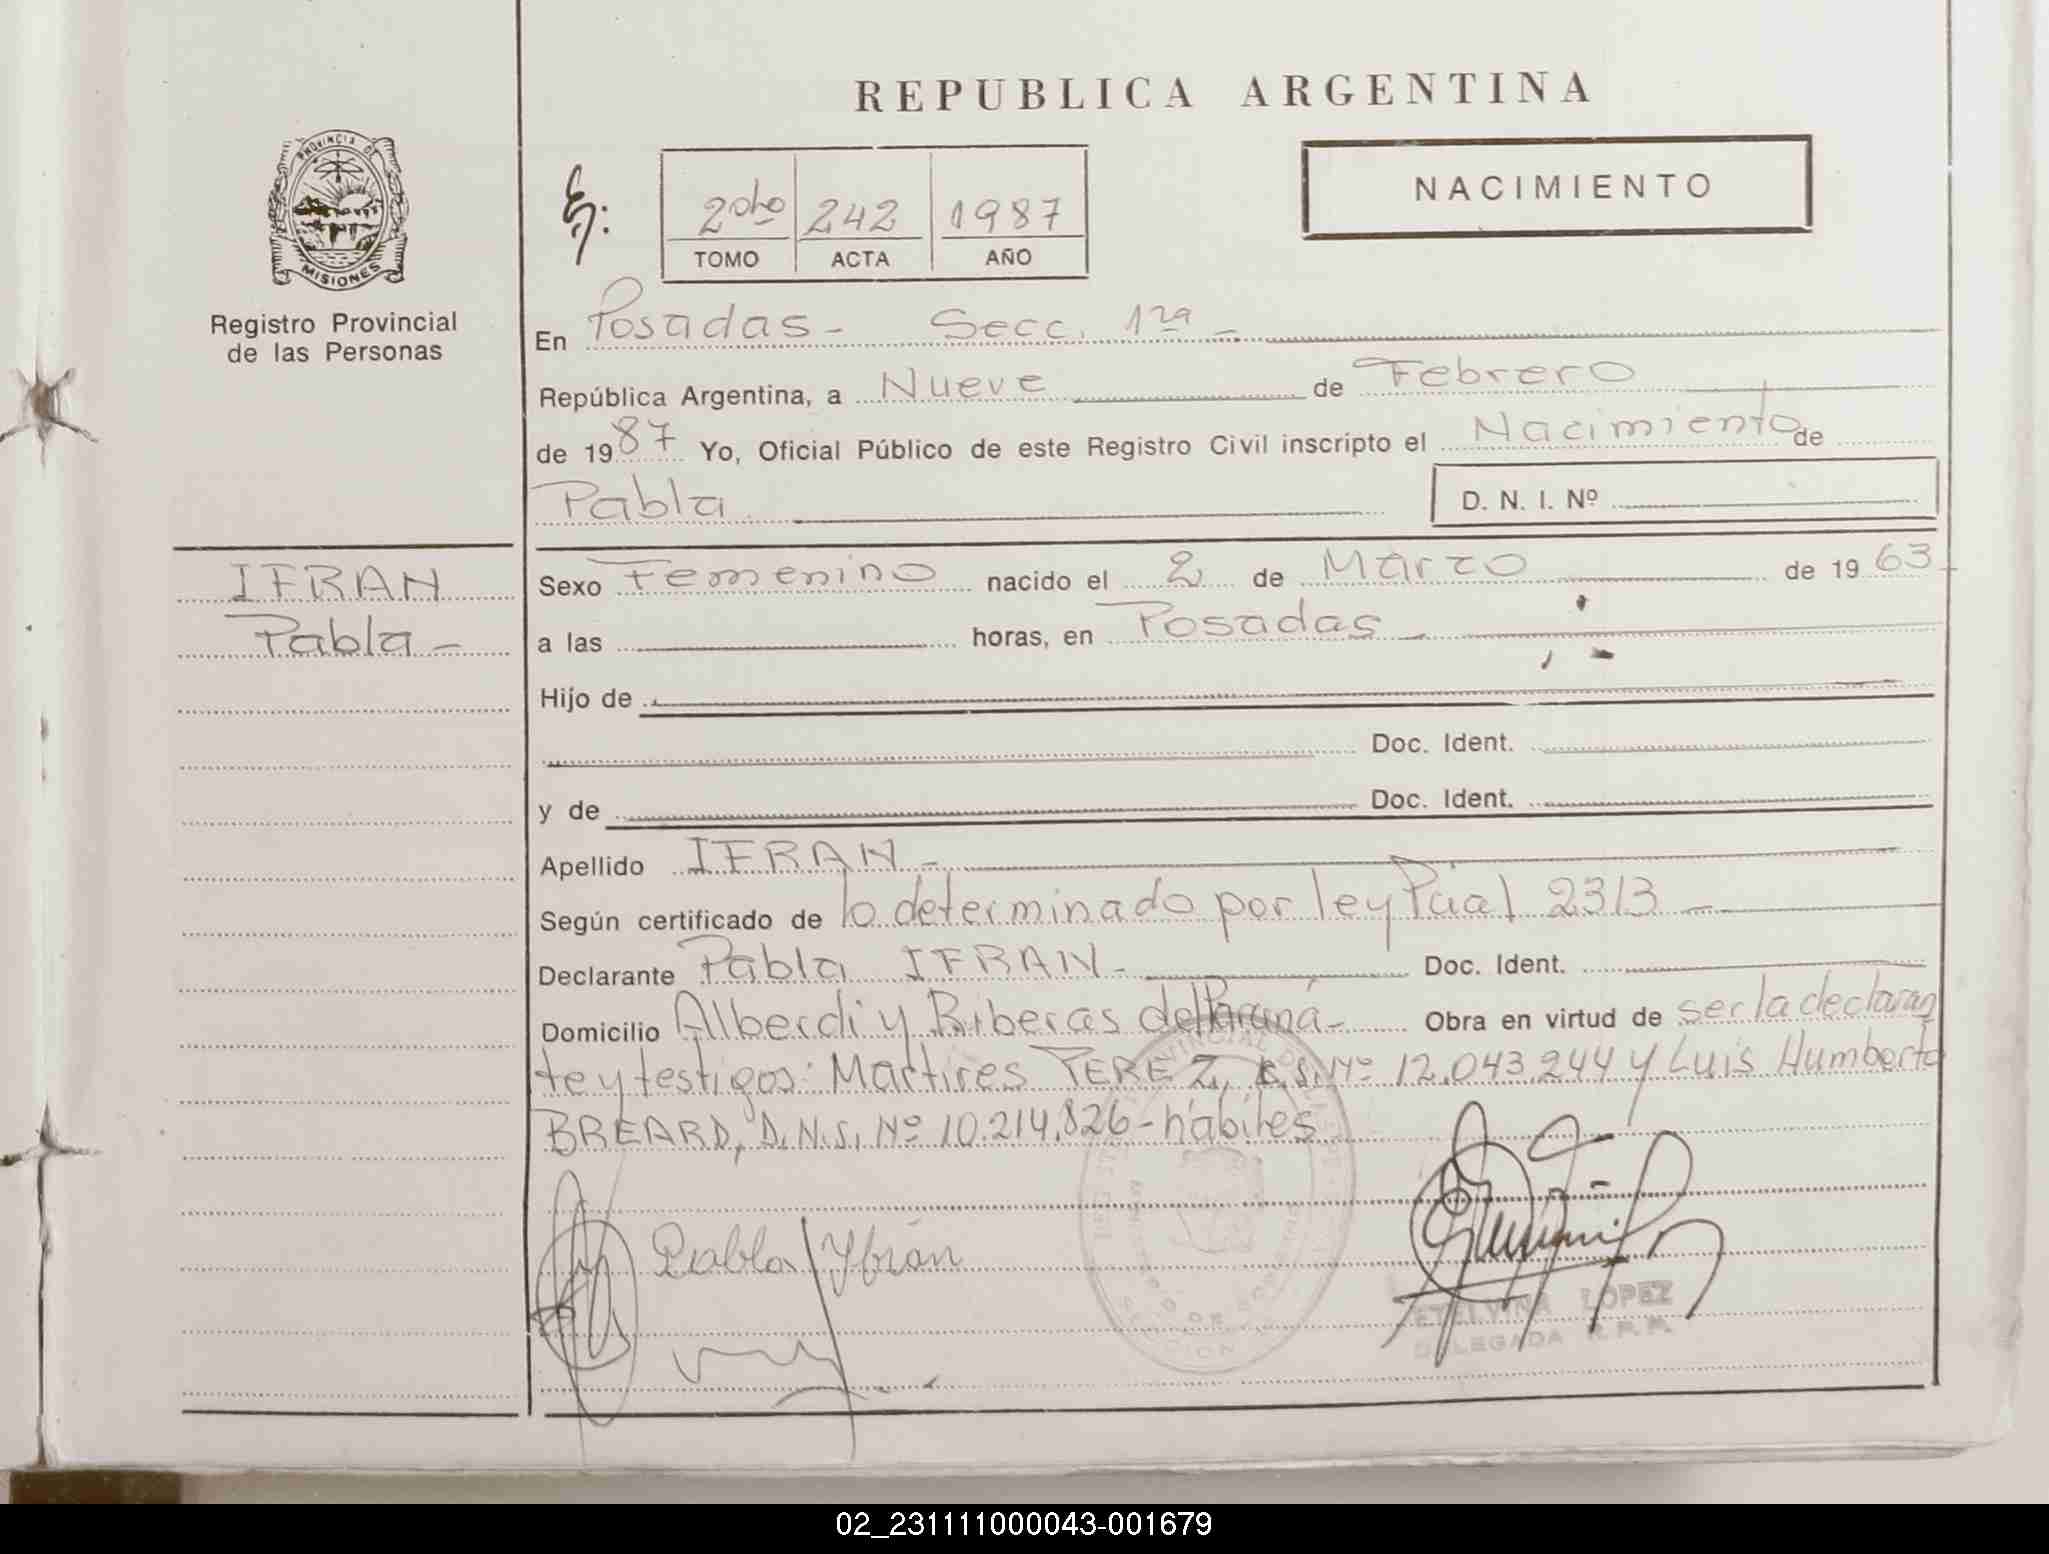 REPUBLICA ARGENTINA
PROVINCIA DE
MISIONES
Registro Provincial
de las Personas
2do 242 1987
TOMO ACTA AÑO
NACIMIENTO
En Posadas - Secc. 1ra -
República Argentina, a Nueve de Febrero
de 1987 Yo, Oficial Público de este Registro Civil inscripto el Nacimiento de
Pabla D. N. I. Nº
IFRAN
Pabla -
Sexo Femenino nacido el 2 de Marzo de 1963
a las horas, en Posadas -
Hijo de
Doc. Ident.
y de Doc. Ident.
Apellido IFRAN -
Según certificado de lo determinado por ley Pcial 2313 -
Declarante Pabla IFRAN - Doc. Ident.
Domicilio Alberdi y Riberas del Paraná - Obra en virtud de ser la declaran
te y testigos: Martires PEREZ, Nº 12.043.244 y Luis Humberto
BREARD, D.N.I. Nº 10.214.826 - hábiles
Pabla Yfrán
ETELVINA LOPEZ
DELEGADA R. P. P.
02_231111000043-001679